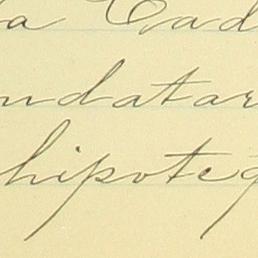 a Cad
ndatar
hipoteq